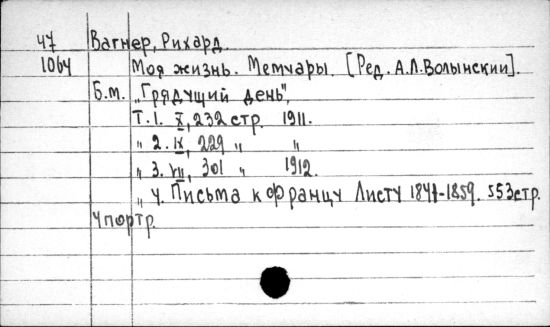 47 Вагнер, Рихард.
1064 Моя жизнь. Мемуары. [Ред. А.Л.Волынский].
Б.м. "Грядущий день",
Т.1. X, 232 стр. 1911.
„ 2. IX, 229 „ „
„ 3. VII, 301 „ 1912.
„ 4. Письма к Францу Листу 1841-1859. 553 стр.
4 портр.